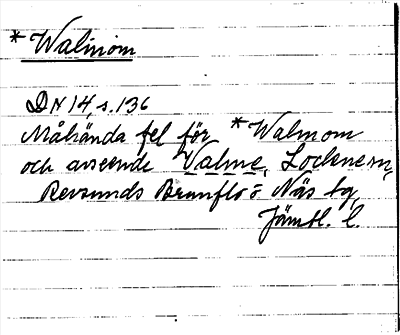 * Walinom
DN 14, s. 136
Måhända fel för * Walmom
och avseende Valme, Lockne sn,
Revsunds Brunflo o Näs tg,
Jämtl. l.